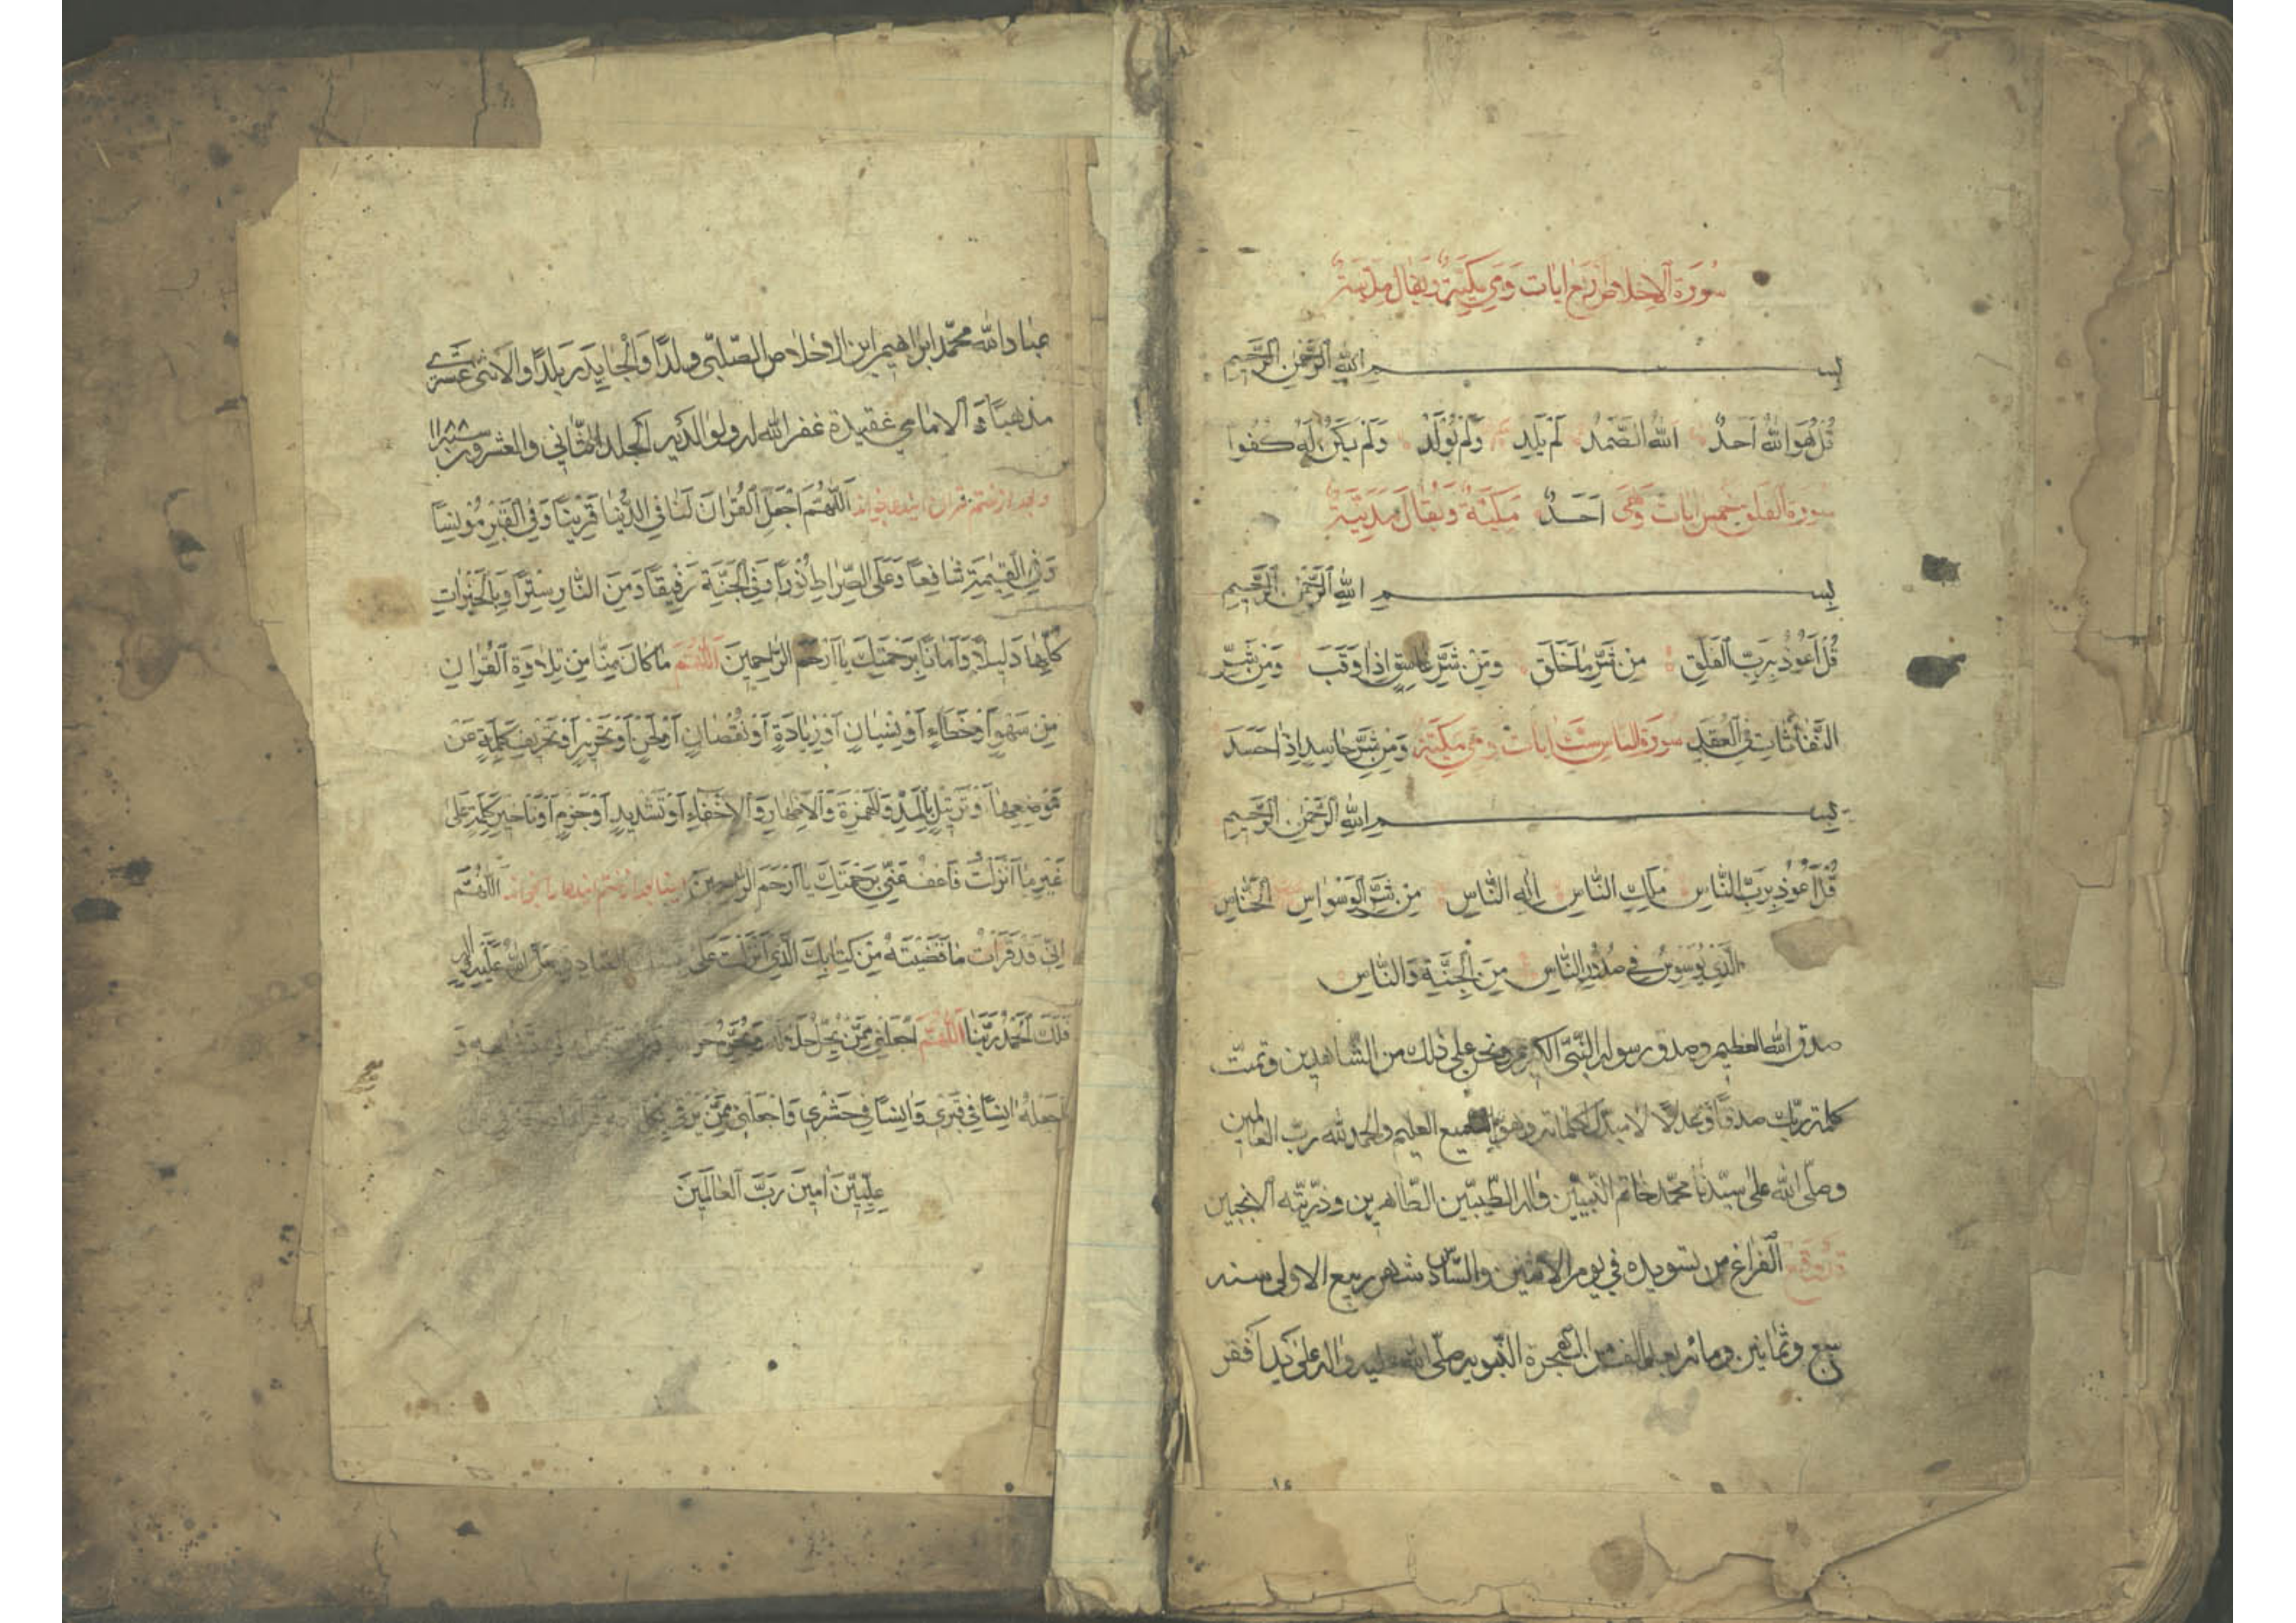 سورة الاخلاص اربع ايات وهي مكية ويقال مدنية
بسم الله الرحمن الرحيم
قُل هُوَ اللهُ اَحَدٌ اَللهُ الصَّمَدُ لَم يَلِد وَلَم يُولَد وَلَم يَكُن لَهُ كُفُوا
سورة الفلق خمس ايات وهى اَحَدٌ مكية ويقال مدنية
بسم الله الرحمن الرحيم
قُل اَعُوذُ بِرَبِّ الفَلَقِ مِن شَرِّ مَا خَلَقَ وَمِن شَرِّ غَاسِقٍ اِذَا وَقَبَ وَمِن شَرِّ
النَّفَّاثَاتِ فِى العُقَدِ سورة الناس ست ايات وهى مكية وَمِن شَرِّ حَاسِدٍ اِذَا حَسَدَ
بسم الله الرحمن الرحيم
قُل اَعُوذُ بِرَبِّ النَّاسِ مَلِكِ النَّاسِ اِلٰهِ النَّاسِ مِن شَرِّ الوَسوَاسِ الخَنَّاسِ
الَّذِي يُوَسوِسُ فِي صُدُورِ النَّاسِ مِنَ الجِنَّةِ وَالنَّاسِ
صدق الله العظيم وصدق رسوله النبي الكريم ونحن على ذلك من الشاهدين وتمت
كلمة ربك صدقا وعدلا لا مبدل لكلماته وهو السميع العليم والحمد لله رب العالمين
وصلى الله على سيدنا محمد خاتم النبيين واله الطيبين الطاهرين وذريته الانجبين
الفراغ من تسويده في يوم الاثنين والسادس شهر ربيع الاولى سنه
سبع وثمانين ومائة بعد الف من الهجرة النبويه صلى الله عليه واله على يد افقر
عباد الله محمد ابراهيم ابن ولدا بلدا والاثنى عشرى
مذهبا والامامي عقيدة غفر الله له ولوالديه الجلد الثاني والعشرون سنه ١١٨٨
وبعد از ختم قران اَللّٰهُمَّ اجعَلِ القُرانَ لَنَا فِي الدُّنيَا قَرِينًا وَفِي القَبرِ مُونِسًا
وَفِي القِيٰمَةِ شَافِعًا وَعَلَى الصِّرَاطِ نُورًا وَفِي الجَنَّةِ رَفِيقًا وَمِنَ النَّارِ سِترًا وَاِلَى الخَيرَاتِ
كُلِّهَا دَلِيلًا وَاَمَانًا بِرَحمَتِكَ يَا اَرحَمَ الرَّاحِمِينَ اَللّٰهُمَّ مَا كَانَ مِنَّا مِن تِلَاوَةِ القُرانِ
مِن سَهوٍ اَو خَطَاءٍ اَو نِسيَانٍ اَو زِيَادَةٍ اَو نُقصَانٍ اَو لَحنٍ اَو تَحرِيفِ كَلِمَةٍ عَن
مَوضِعِهَا اَو تَرتِيلٍ بِالمَدِّ وَالهَمزَةِ وَالاِظهَارِ وَالاِخفَاءِ اَو تَشدِيدٍ اَو جَزمٍ اَو تَاخِيرِ كَلِمَةٍ عَلَى
غَيرِ مَا اَنزَلتَ فَاعفُ عَنِّي بِرَحمَتِكَ يَا اَرحَمَ الرَّاحِمِينَ اَللّٰهُمَّ
اِنِّي قَد قَرَاتُ مَا قَضَيتَهُ مِن كِتَابِكَ الَّذِي اَنزَلتَ عَلَى الصادق صل الله عليه واله
فَلَكَ الحَمدُ رَبَّنَا اَللّٰهُمَّ اجعَلنِي مِمَّن يُحِلُّ حَلَالَهُ وَيُحَرِّمُ
وَاجعَلهُ اُنسًا فِي قَبرِي وَاُنسًا فِي حَشرِي وَاجعَلنِي مِمَّن
عِلِّيِّينَ اٰمِينَ رَبَّ العَالَمِينَ